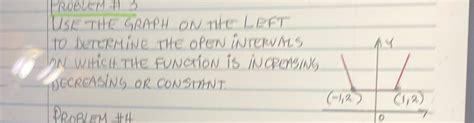 PROBLEM # 3
USE THE GRAPH ON THE LEFT
TO DETERMINE THE OPEN INTERVALS
ON WHICH THE FUNCTION IS INCREASING,
DECREASING OR CONSTANT.
y
(-1,2) (1,2)
0
PROBLEM #4